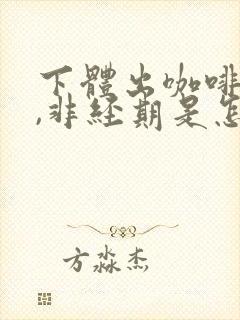 下體出咖啡
,非经期是怎
方淼杰